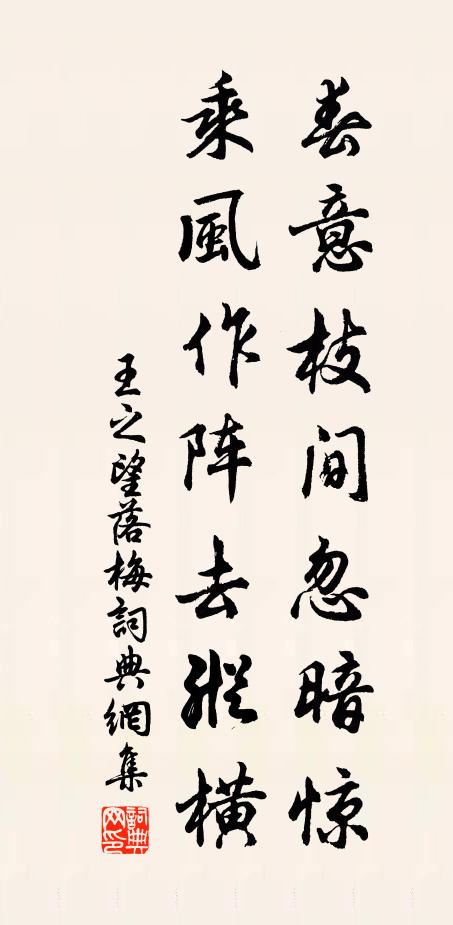 春意枝间忽暗惊
乘風作阵去縱橫
王之望落梅詞典網集
詞典網印